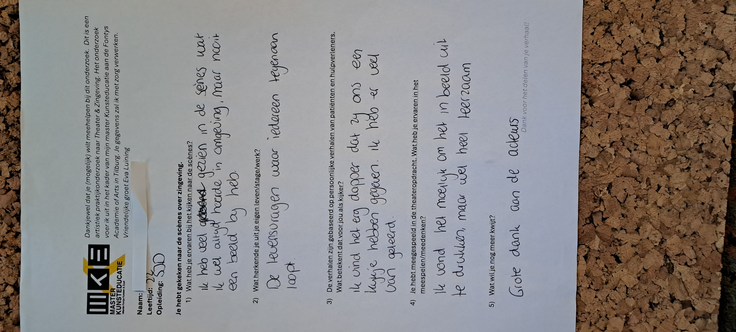 Dankjewel dat je (mogelijk) wilt meehelpen bij dit onderzoek. Dit is een
artistiek praktijkonderzoek naar Theater & Zingeving. Het onderzoek
voer ik uit in het kader van mijn master Kunsteducatie aan de Fontys
Academie of Arts in Tilburg. Je gegevens zal ik met zorg verwerken.
Vriendelijke groet Eva Luming
MKE
MASTER
KUNSTEDUCATIE
Naam:
Leeftijd: 22
Opleiding: SJD
Je hebt gekeken naar de scènes over zingeving.
1) Wat heb je ervaren bij het kijken naar de scènes?
Ik heb veel gezien in de scenes wat
ik wel altijd hoorde in omgeving, maar nooit
een beeld bij heb
2) Wat herkende je uit je eigen leven/stage/werk?
De levensvragen waar iedereen tegenaan
loopt
3) De verhalen zijn gebaseerd op persoonlijke verhalen van patiënten en hulpverleners.
Wat betekent dat voor jou als kijker?
Ik vind het erg dapper dat zij ons een
kijkje hebben gegeven. Ik heb er veel
van geleerd
4) Je hebt meegespeeld in de theateropdracht. Wat heb je ervaren in het
meespelen/meedenken?
Ik vond het moeilijk om het in beeld uit
te drukken, maar wel heel leerzaam
5) Wat wil je nog meer kwijt?
Grote dank aan de acteurs
Dank voor het delen van je verhaal!